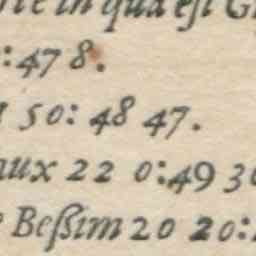 in qua eſt
:47 8.
50: 48 47.
aux 22 0:49 3
Beßim 20 20: